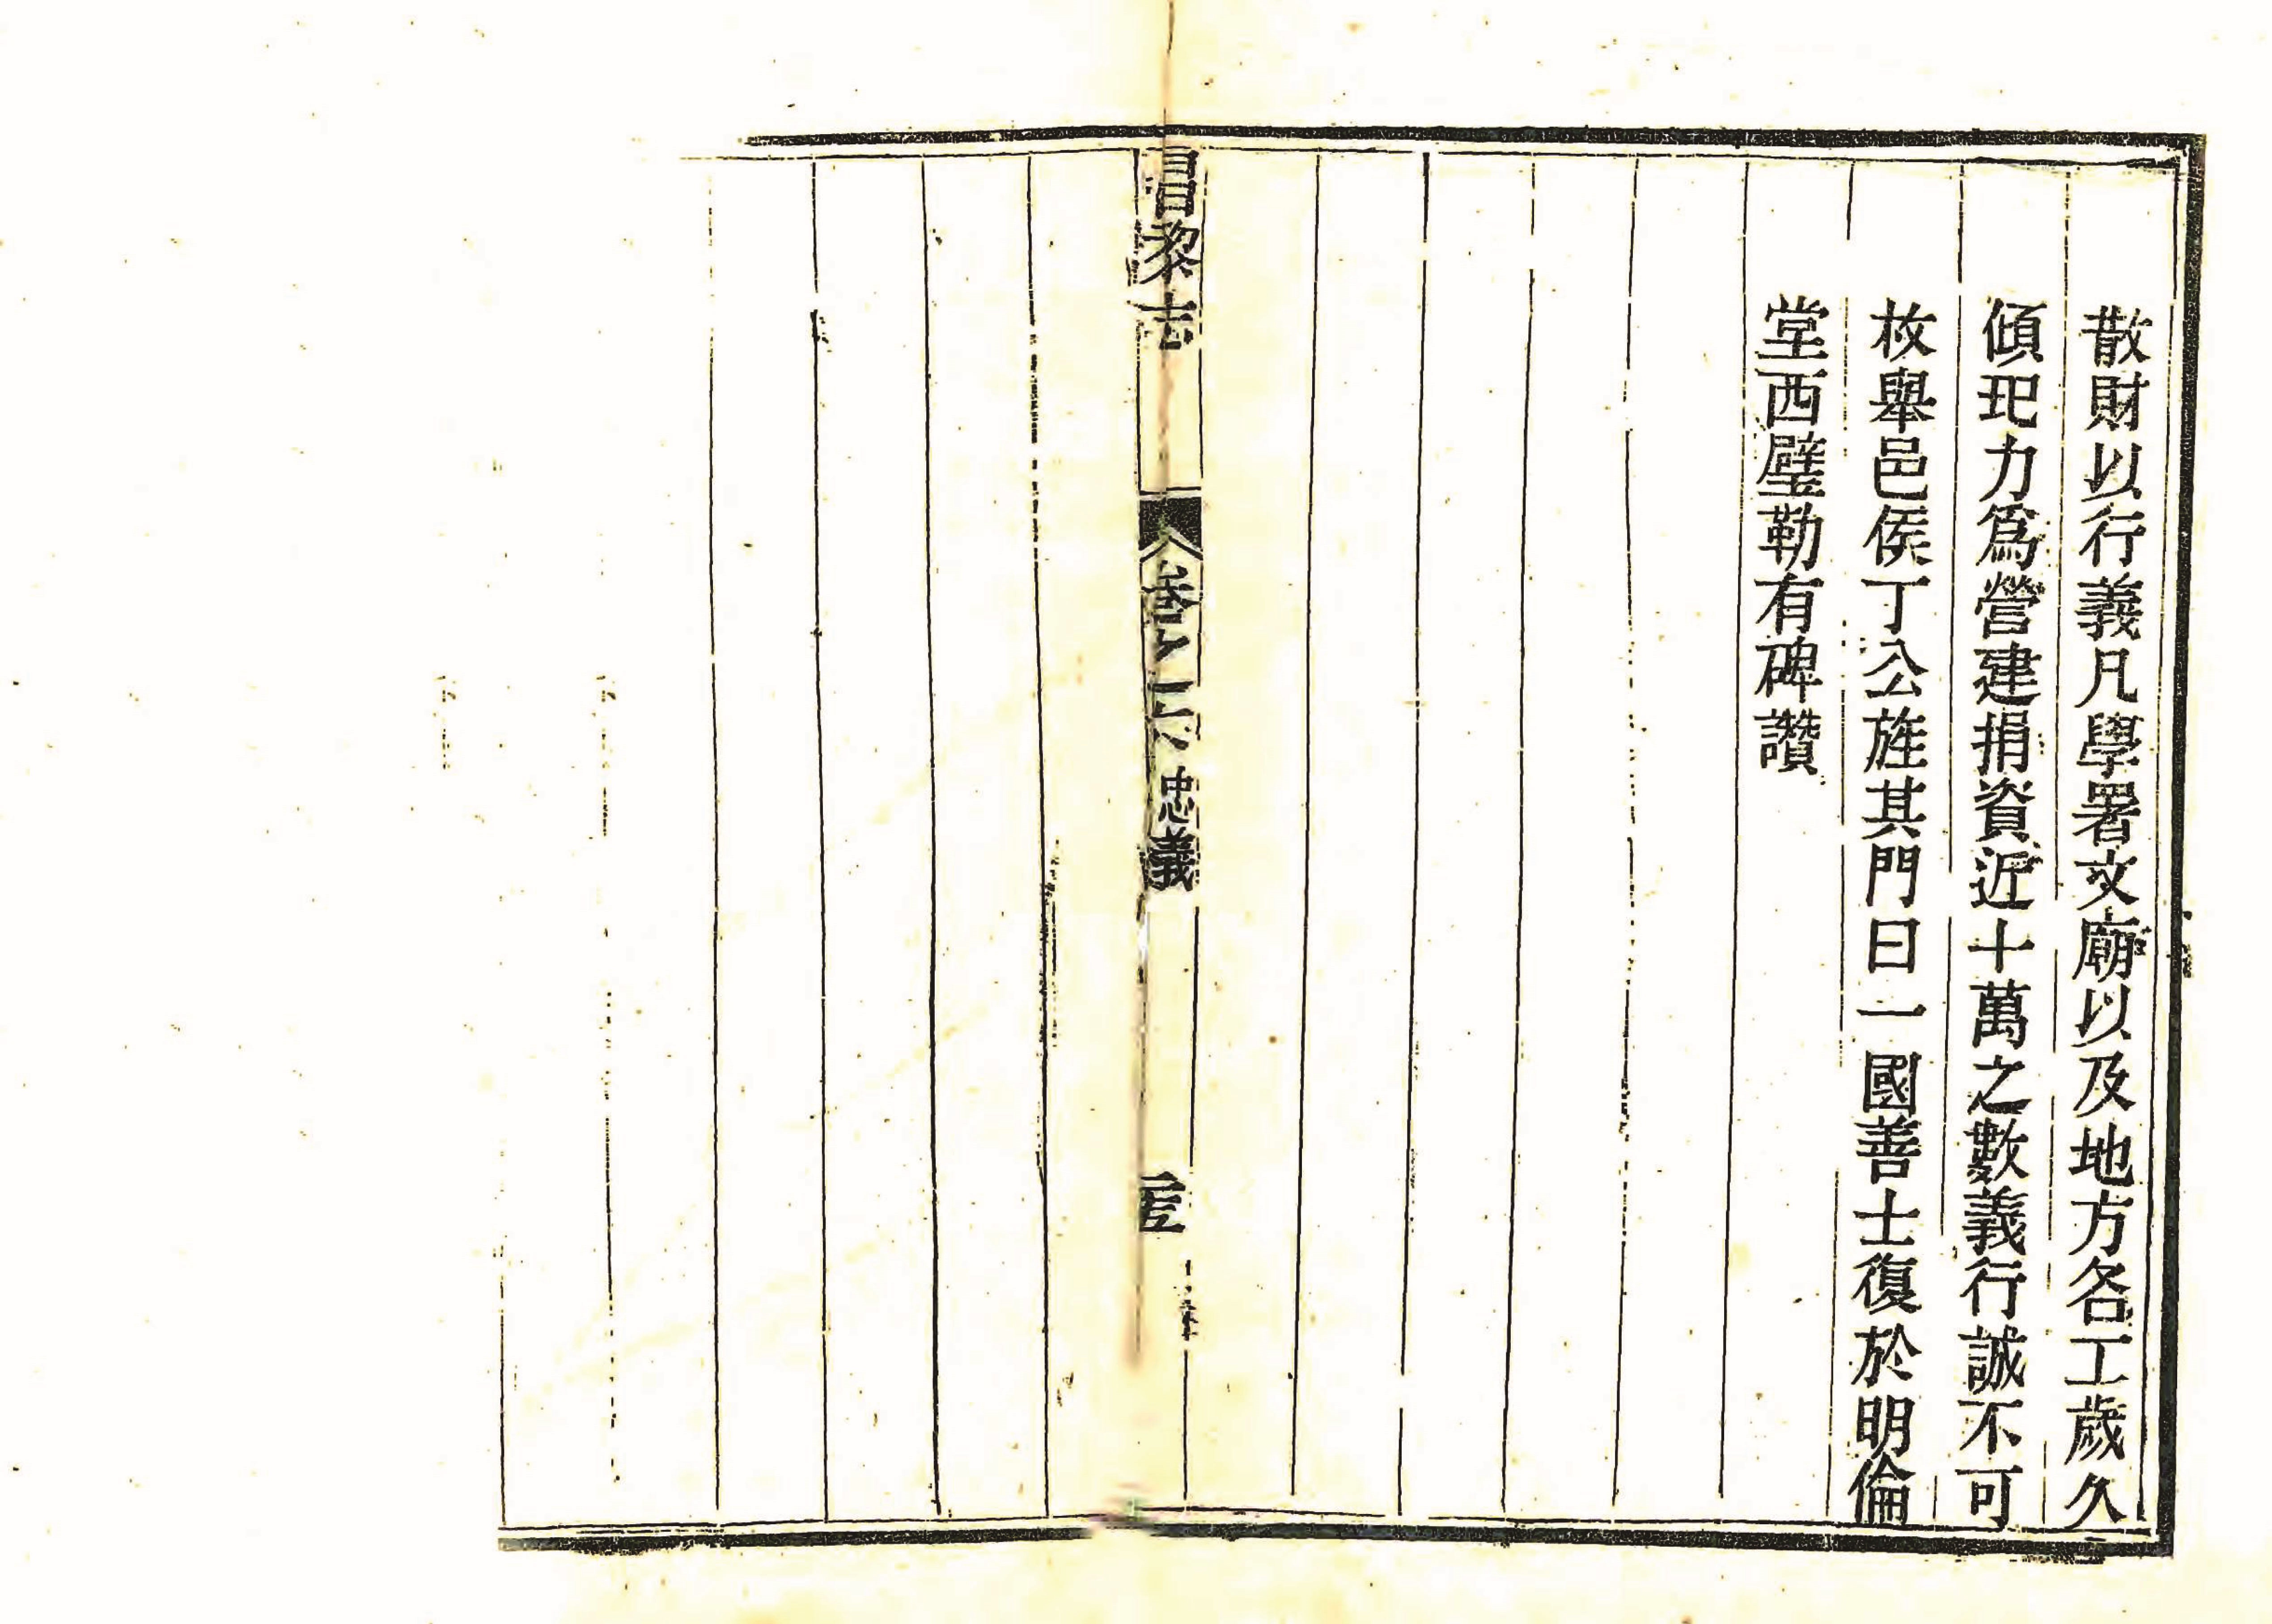 散財以行義凡學署文廟以及地方各工歲久
傾圯力爲營建捐資近十萬之數義行誠不可
枚舉邑侯丁公旌其門曰一國善士復於明倫
堂西壁勒有碑讚
昌黎志
卷六
忠義